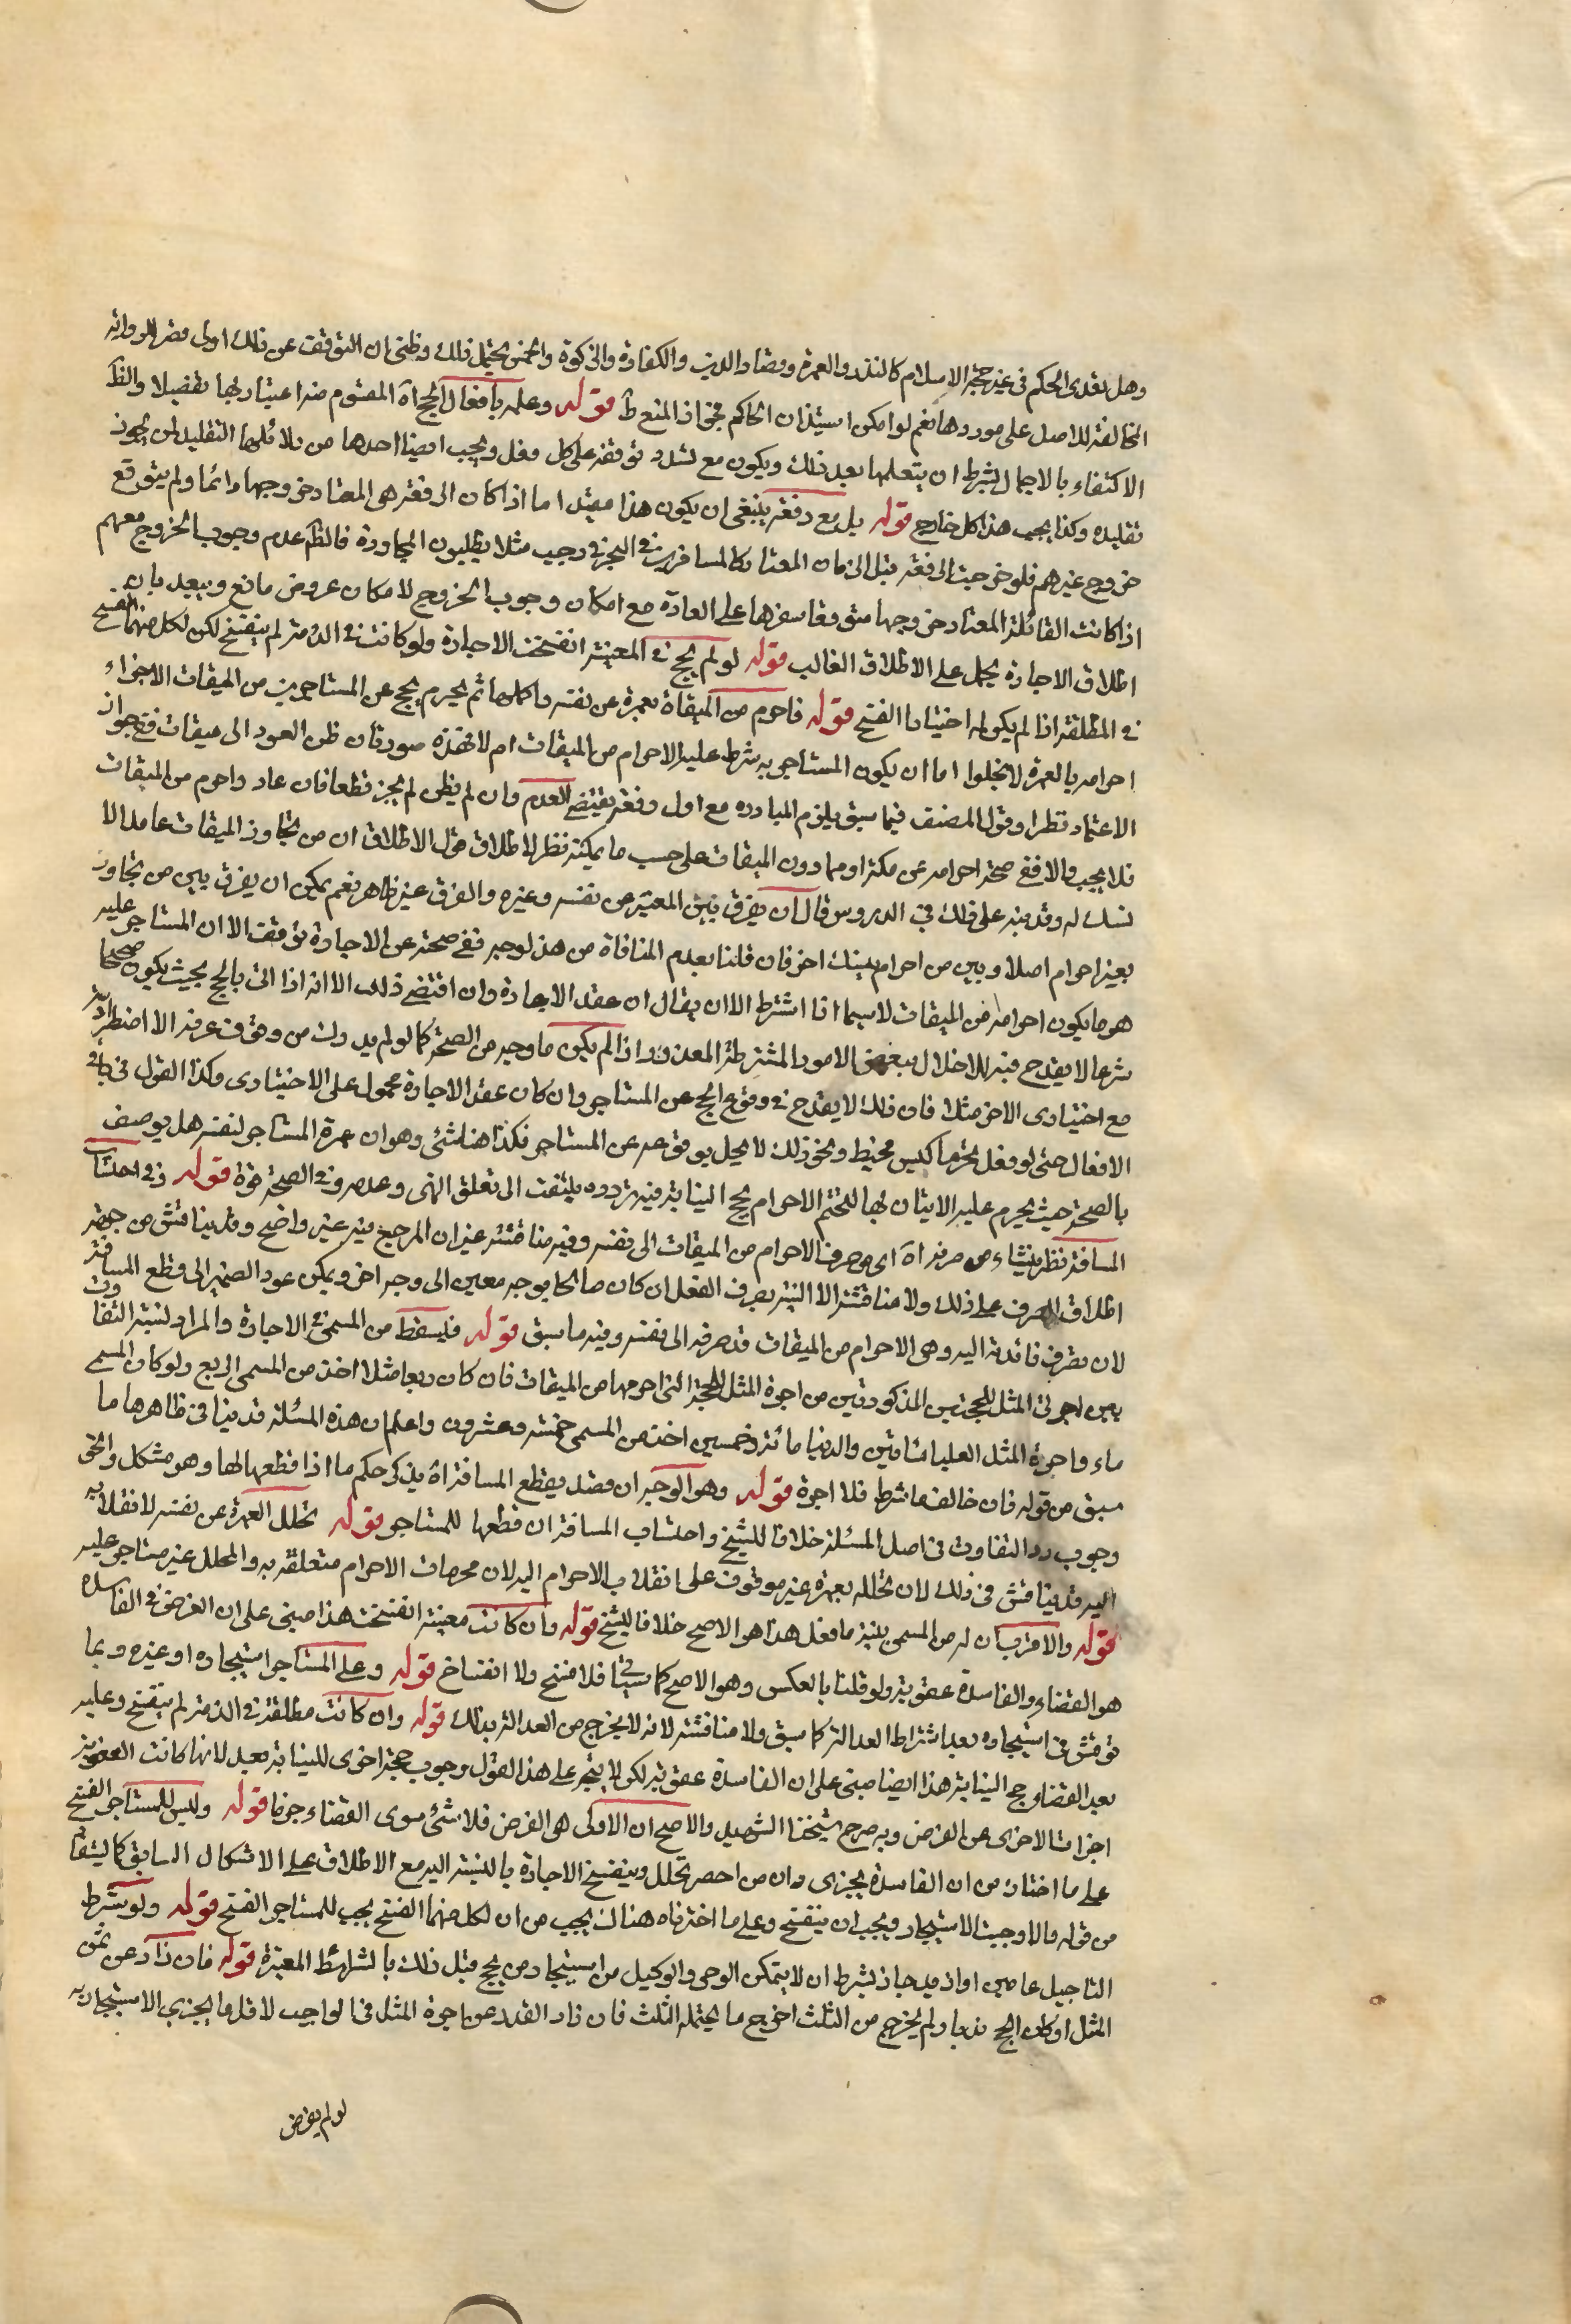 وهل يتعدى الحكم في غير حجة الاسلام كالنذر والعمرة وقضاء الدين والكفارة والزكوة والخمس يحتمل ذلك وظني ان التوقف عن ذلك اولى قصر للرواية
المخالفة للاصل على موردها نعم لو امكن استيذان الحاكم فجواز المنع ط قوله وعلمه بافعال الحج اه المفهوم منه اعتبار بها تفصيلا والظ
الاكتفاء بالاجمال بشرط ان يتعلمها بعد ذلك ويكون مع مسدد توقفه على كل فعل ويجب ايضا احدها من بلا قلها التقليد لمن يجوز
تقليده وكذا يجب هذا كل خارج قوله بل مع رفقة ينبغي ان يكون هذا مقيدا اما اذا كان الرفقة هي المعتاد خروجها دائما ولم يتوقع
خروج غيرهم فلو خرجت الرفقة قبل الزمان المعتاد كالمسافرين في البحر في رجب مثلا يطلبون المجاورة فالظ عدم وجوب الخروج معهم
اذا كانت القافلة المعتاد خروجها متوقعا سفرها على العادة مع امكان وجوب الخروج لامكان عروض مانع ويبعد بان
اطلاق الاجارة يحمل على الاطلاق الغالب قوله لو لم يحج في المعينة انفسخت الاجارة ولو كانت في الذمة لم ينفسخ لكن لكل منهما الفسخ
في المطلقة اذا لم يكن له اختيار الفسخ قوله فاحرم من الميقاة بعمرة عن نفسه واكملها ثم يحرم بحج عن المستاجر من الميقات الاجزاء
احرامه بالعمرة لا يخلوا اما ان يكون المستاجر به شرط عليه الاحرام من الميقات ام لا فهذه صور فان ظن العود الى ميقات ففي جواز
الاعتماد نظرا وقول المصنف فيما سبق يلزم المبادرة مع اول رفقة يقتضي العدم وان لم يظن لم يجز قطعا فان عاد واحرم من الميقات
فلا يجب والا ففي صحة احرامه عن مكة او مما دون الميقات على حسب ما يمكنه نظر لاطلاق قول الاطلاق ان من تجاوز الميقات عامدا لا
نسك له وقد نبه على ذلك في الدروس قال ان يفرق بين المعتمر عن نفسه وغيره والفرق غير ظاهر نعم يمكن ان يفرق بين من تجاوز
بغير احرام اصلا وبين من احرام بنسك اخر فان قلنا بعدم المنافاة من هذا لوجه ففي صحته عن الاجارة توقف الا ان المستاجر عليه
هو ما يكون احرامه من الميقات لا سيما اذا اشترط الا ان يقال ان عقد الاجارة وان اقتضى ذلك الا انه اذا اتى بالحج بحيث يكون صحيحا
شرعا لا يقدح فيه الاخلال ببعض الامور المشترطة المعذور اذا لم يكن ما وجبه من الصحة كما لو لم يدرك من وقوف عرفة الا اضطراريه
مع اختيارى الاخر مثلا فان ذلك لا يقدح في وقوع الحج عن المستاجر وان كان عقد الاجارة محمول على الاختيارى وكذا القول في باقي
الافعال حتى لو فعل محرما كلبس مخيط ونحو ذلك لا يخل بوقوعه عن المستاجر فكذا هنا شئ وهو ان عمرة المستاجر لنفسه هل يوصف
بالصحة حيث يحرم عليه الاتيان بها لتحتم الاحرام بحج النيابة فيه تردد يلتفت الى تعلق النهى وعدمه وفي الصحة قوة قوله ففي احتساب
المسافة نظر ينشاء من صرفه اه اى صرف الاحرام من الميقات الى نفسه وفيه مناقشة غير ان المرجع فيه غير واضح وقد يناقش من جهة
اطلاق الصرف على ذلك ولا مناقشة الا النية يصرف الفعل ان كان صالحا بوجه معين الى وجه اخر ويمكن عود الضمير الى قطع المسافة
لان صرف فائدته اليه وهى الاحرام من الميقات قد صرفه الى نفسه وفيه ما سبق قوله فيسقط من المسمى في الاجارة والمراد لنسبة التفاوت
بين اجرتي المثل للحجتين المذكورتين من اجرة المثل للحجة التى احرمها من الميقات فان كان ربعا مثلا اخذ من المسمى الربع ولو كان المسمى
ماء واجرة المثل العليا مائتين والدنيا مائة وخمسين اخذ من المسمى خمسة وعشرون واعلم ان هذه المسئلة قد ينافى ظاهرها ما
سبق من قوله فان خالف ما شرط فلا اجرة قوله وهو الوجه ان قصد بقطع المسافة اه يذكر حكم ما اذا قطعها لها وهو مشكل والحق
وجوب رد التفاوت في اصل المسئلة خلافا للشيخ واحتساب المسافة ان قطعها للمستاجر قوله تحلل العمرة عن نفسه لانقلابه
اليه قد يناقش في ذلك لان تحلله بعمرة غير موقوف على انقلاب الاحرام اليه لان محرمات الاحرام متعلقة به والمحلل غير مستاجر عليه
قوله والاقرب ان له من المسمى بنسبة ما فعل هذا هو الاصح خلافا للشيخ قوله وان كانت معينة انفسخت هذا مبنى على ان الفرض في الفاسدة
هو القضاء والفاسدة عقوبة ولو قلنا بالعكس وهو الاصح كما سياتي فلا فسخ ولا انفساخ قوله وعلى المستاجر استيجاره او غيره وربما
توقش في استيجاره بعد اشتراط العدالة كما سبق ولا مناقشة لانه لا يخرج من العدالة بذلك قوله وان كانت مطلقة في الذمة لم ينفسخ وعليه
بعد القضاء حج النيابة هذا ايضا مبنى على ان الفاسدة عقوبة لكن لا يتجه على هذا القول وجوب حجة اخرى للنيابة بعد لانها كانت العقوبة
اجزات الاخرى عن الفرض وبه صرح شيخنا الشهيد والاصح ان الاولى هى الفرض فلا شئ سوى القضاء جزما قوله وليس للمستاجر الفسخ
على ما اختاره من ان الفاسدة يجزى وان من احصر تحلل وينفسخ الاجارة بالنسبة اليه مع الاطلاق على الاشكال السابق كما يستفاد
من قوله والا وجبت الاستيجار ويجب ان ينفسخ وعلى ما اخترناه هناك يجب من ان لكل منهما الفسخ يجب للمستاجر الفسخ قوله ولو شرط
التاجيل عامين او ازيد جاز بشرط ان لا يتمكن الوصى والوكيل من استيجار من يحج قبل ذلك بالشرائط المعتبرة قوله فان زاد عن ثمن
المثل او كان الحج ندبا ولم يخرج من الثلث اخرج ما يحتمله الثلث فان زاد القدر عن اجرة المثل في الواجب لاقل ما يجزى الاستيجار به
لو لم يفرض